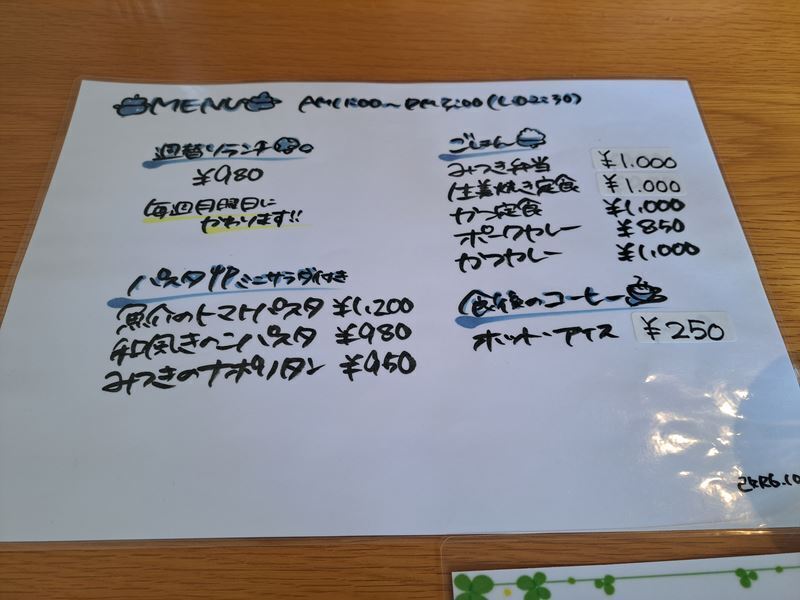 MENU AM11:00~PM3:00(LO2:30)
週替りランチ
¥980
毎週月曜日に
かわります!!
パスタ ミニサラダ付き
魚介のトマトパスタ ¥1,200
和風きのこパスタ ¥980
みつきのナポリタン ¥950
ごはん
みつき弁当 ¥1.000
生姜焼き定食 ¥1.000
カツ定食 ¥1,000
ポークカレー ¥850
かつカレー ¥1,000
食後のコーヒー
ホット・アイス ¥250